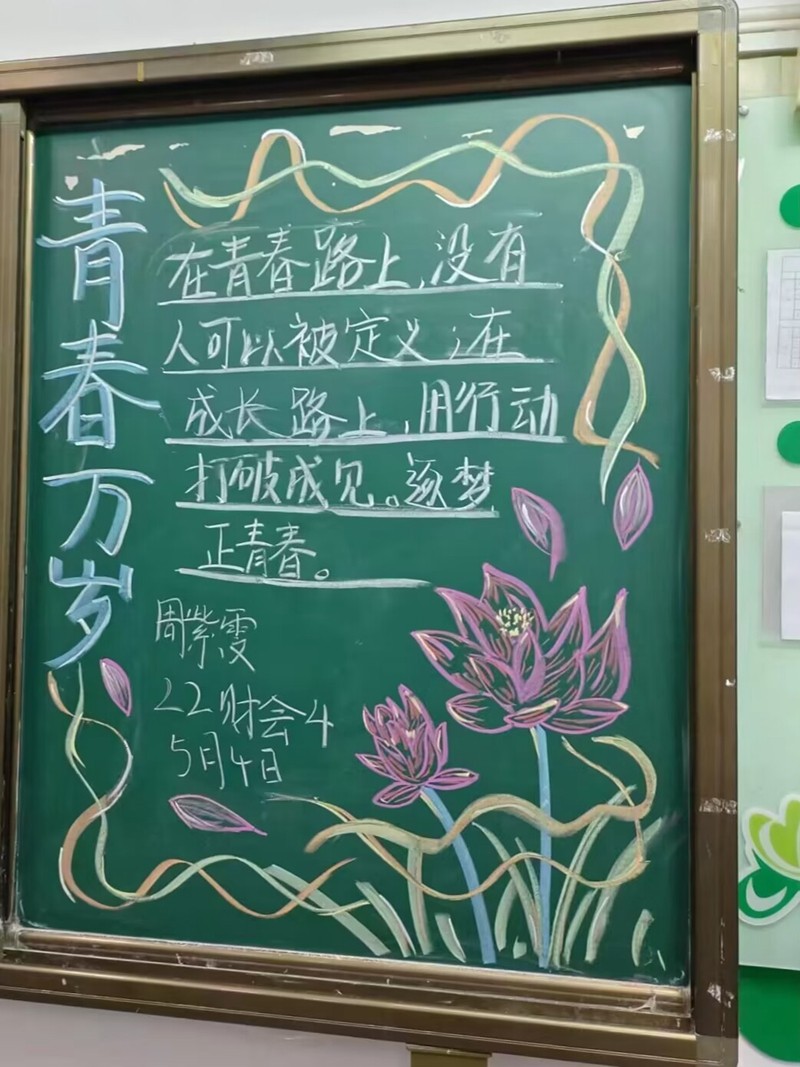 青春万岁
在青春路上,没有
人可以被定义;在
成长路上,用行动
打破成见。逐梦
正青春。
周紫雯
22财会4
5月4日